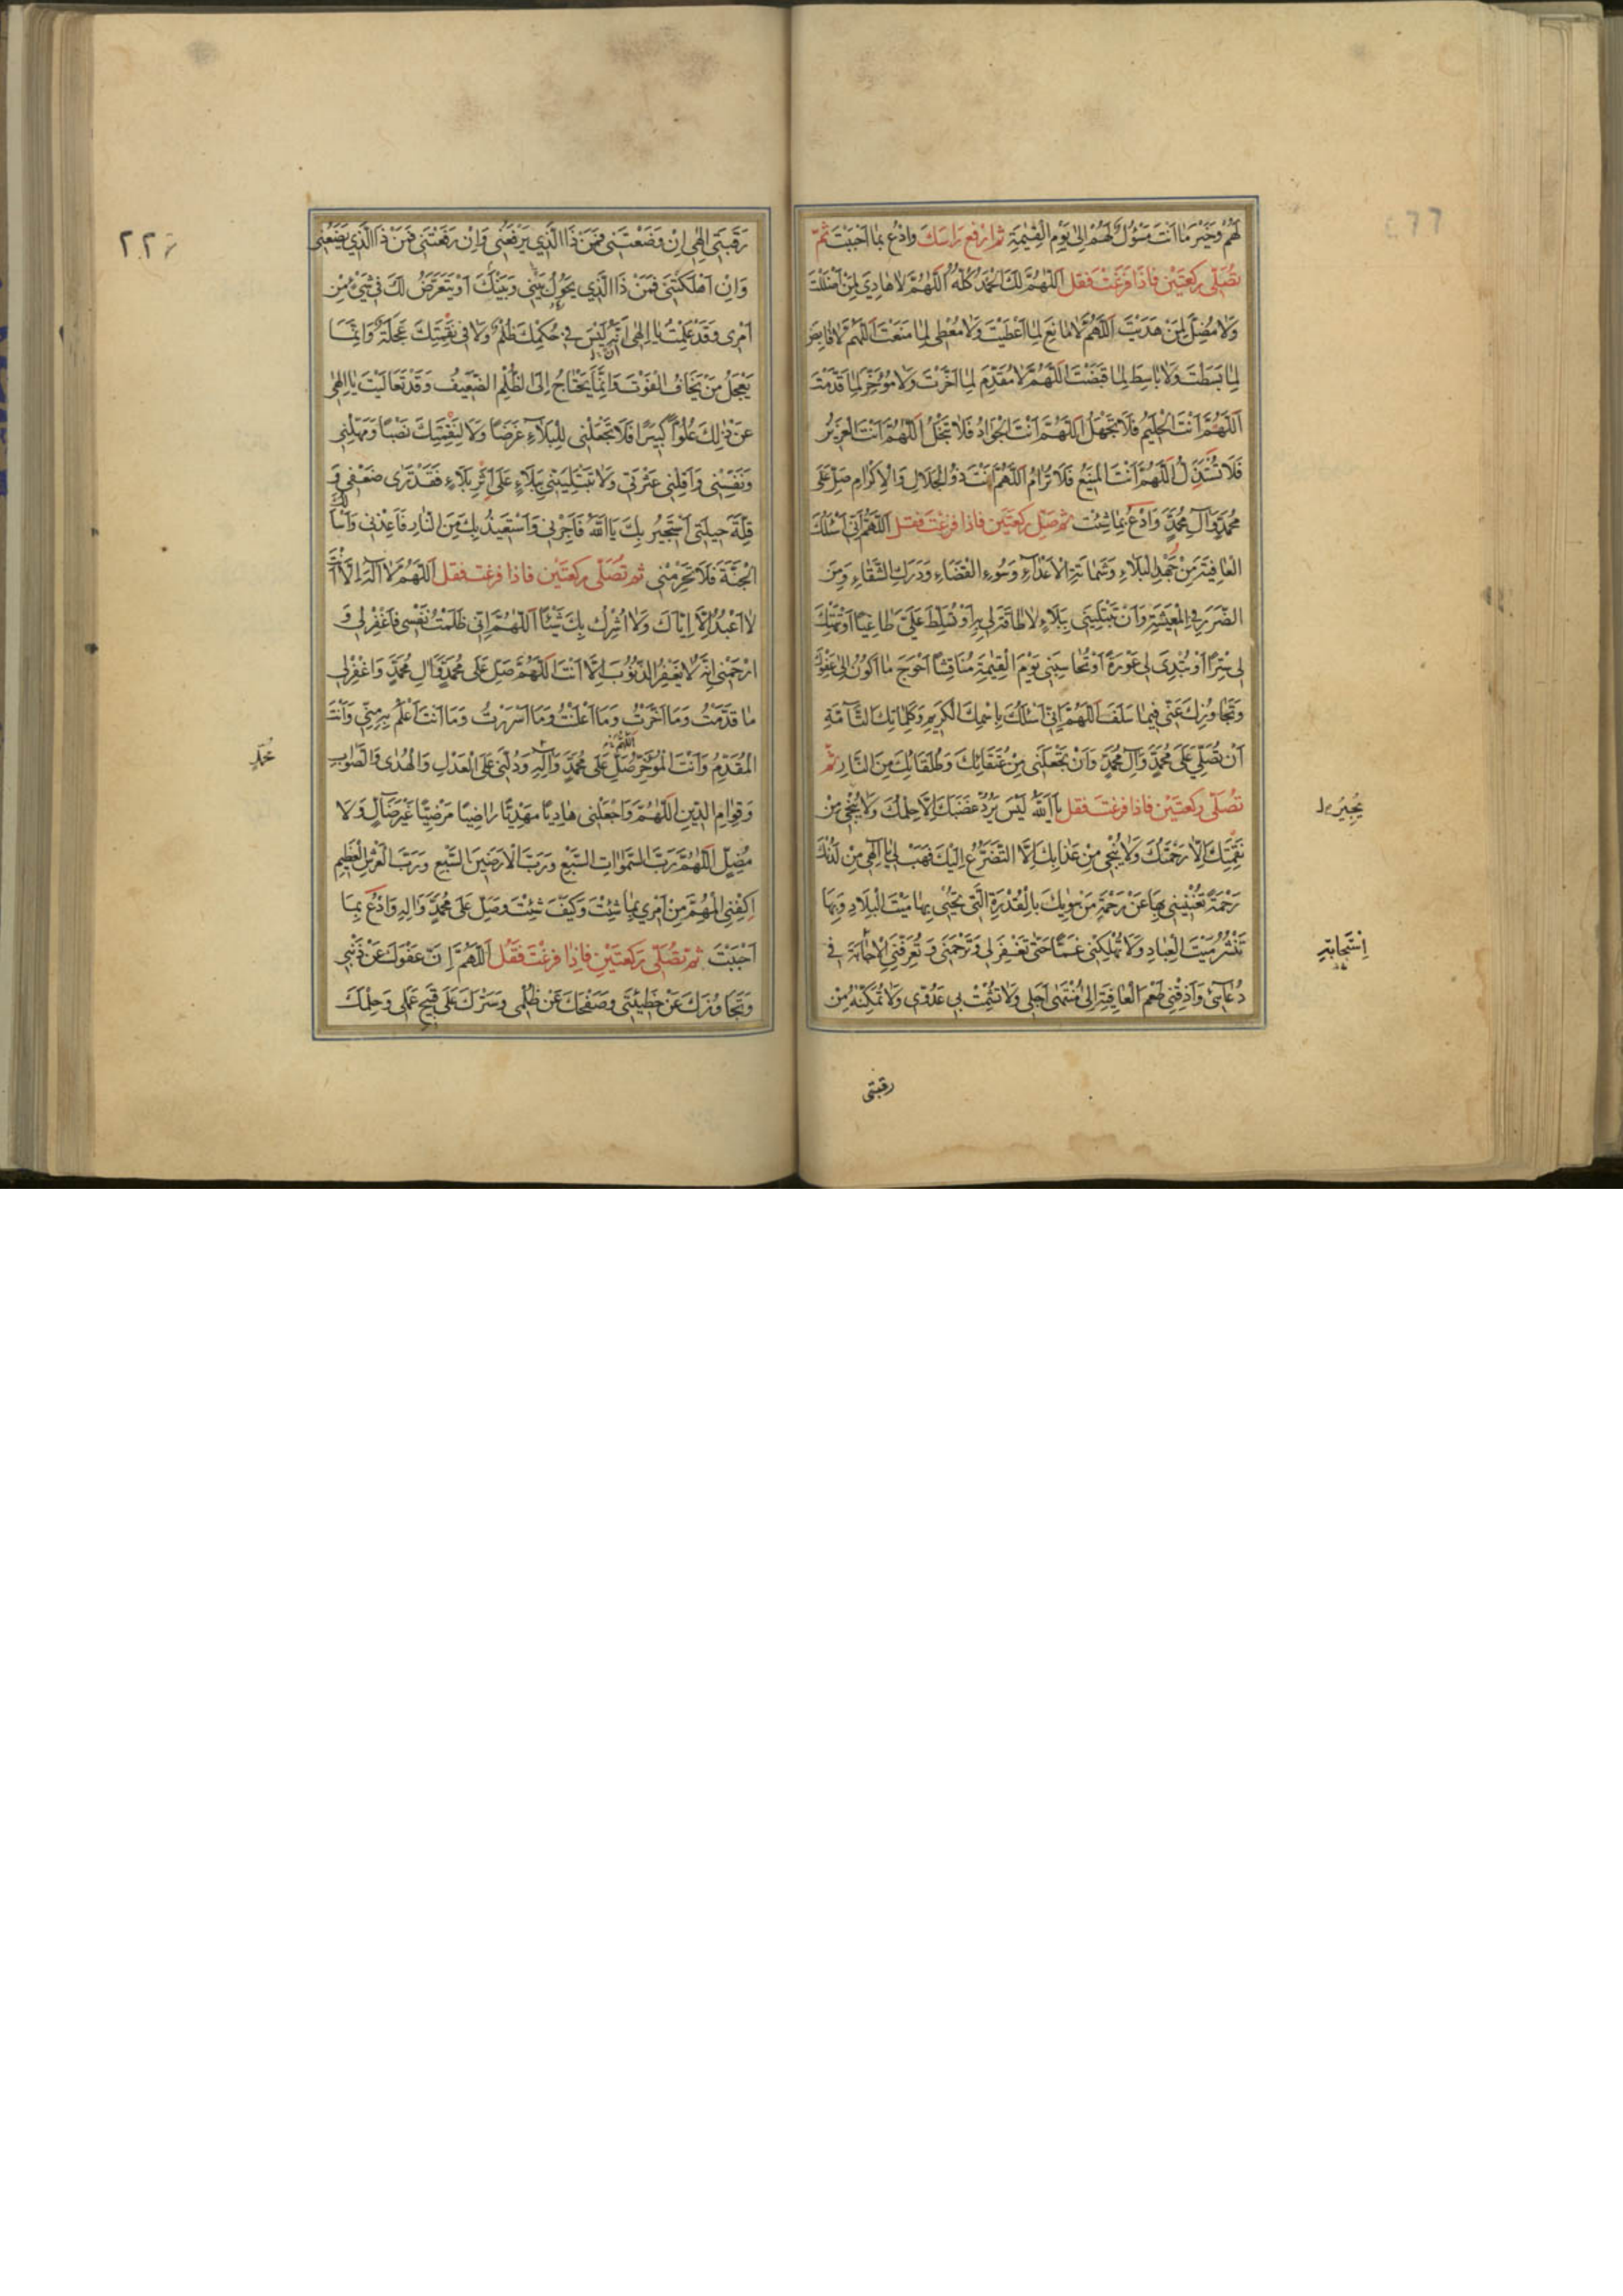 لَهُمْ وَخَيْرَ مَا اَنْتَ مَسْؤُلٌ لَهُمْ اِلٰى يَوْمِ الْقِيٰمَةِ ثم ارفع رَاسَكَ وادْعُ بما اَحْبَبْتَ ثُمّ
تُصَلّى ركعَتَيْن فاذا فَرَغْتَ فقل اَللّٰهُمَّ لَكَ الْحَمْدُ كُلُّهُ اَللّٰهُمَّ لا هادِىَ لِمَنْ اَضْلَلْتَ
وَلا مُضِلَّ لِمَنْ هَدَيْتَ اَللّٰهُمَّ لا مانِعَ لِما اَعْطَيْتَ وَلا مُعْطِىَ لِما مَنَعْتَ اَللّٰهُمَّ لا قابِضَ
لِما بَسَطْتَ وَلا باسِطَ لِما قَبَضْتَ اَللّٰهُمَّ لا مُقَدِّمَ لِما اَخَّرْتَ وَلا مُؤَخِّرَ لِما قَدَّمْتَ
اَللّٰهُمَّ اَنْتَ الْحَليمُ فَلا تَجْهَلُ اَللّٰهُمَّ اَنْتَ الْجَوادُ فَلا تَبْخَلُ اَللّٰهُمَّ اَنْتَ الْعَزيزُ
فَلا تُسْتَذَلُّ اَللّٰهُمَّ اَنْتَ الْمَنيعُ فَلا تُرامُ اَللّٰهُمَّ اَنْتَ ذُو الْجَلالِ وَالْاِكْرامِ صَلِّ عَلٰى
مُحَمَّدٍ وَآلِ مُحَمَّدٍ وَادْعُ بِمَا شِئْتَ ثم صَلّ ركعتَين فاذا فرغتَ فقل اَللّٰهُمَّ اِنّى اَسْئَلُكَ
الْعافِيَةَ مِنْ جَهْدِ الْبَلاءِ وَشَماتَةِ الْاَعْدآءِ وَسُوءِ الْقَضاءِ وَدَرَكِ الشَّقاءِ وَمِنَ
الضَّرَرِ فِى الْمَعيشَةِ وَاَنْ تَبْتَلِيَنى بِبَلاءٍ لا طاقَةَ لى بِهِ اَوْ تُسَلِّطَ عَلَىَّ طاغِيًا اَوْ تَهْتِكَ
لى سِتْرًا اَوْ تُبْدِىَ لى عَوْرَةً اَوْ تُحاسِبَنى يَوْمَ الْقِيٰمَةِ مُناقِشًا اَحْوَجَ ما اَكُونُ اِلٰى عَفْوِكَ
وَتَجاوُزِكَ عَنّى فيما سَلَفَ اَللّٰهُمَّ اِنّى اَسْئَلُكَ بِاسْمِكَ الْكَريمِ وَكَلِماتِكَ التَّآمَّةِ
اَنْ تُصَلِّىَ عَلٰى مُحَمَّدٍ وَآلِ مُحَمَّدٍ وَاَنْ تَجْعَلَنى مِنْ عُتَقائِكَ وَطُلَقائِكَ مِنَ النَّارِ ثُمّ
تُصَلّى ركعتَيْن فاذا فرغتَ فقل يا اَللّٰهُ لَيْسَ يَرُدُّ غَضَبَكَ اِلَّا حِلْمُكَ وَلا يُنْجى مِنْ
يُجيرُ
نَقِمَتِكَ اِلَّا رَحْمَتُكَ وَلا يُنْجى مِنْ عَذابِكَ اِلَّا التَّضَرُّعُ اِلَيْكَ فَهَبْ لى يا اِلٰهى مِنْ لَدُنْكَ
رَحْمَةً تُغْنينى بِها عَنْ رَحْمَةِ مَنْ سِواكَ بِالْقُدْرَةِ الَّتى تُحْيى بِها مَيْتَ الْبِلادِ وَبِها
تَنْشُرُ مَيْتَ الْعِبادِ وَلا تُهْلِكْنى غَمًّا حَتّٰى تَغْفِرَ لى وَتَرْحَمَنى وَتُعَرِّفَنِى الْاِجابَةَ فى
اِسْتِجابَةِ
دُعآئى وَاَذِقْنى طَعْمَ الْعافِيَةِ اِلٰى مُنْتَهٰى اَجَلى وَلا تُشْمِتْ بى عَدُوّى وَلا تُمَكِّنْهُ مِنْ
رقبتى
رَقَبَتى اِلٰهى اِنْ وَضَعْتَنى فَمَنْ ذَا الَّذى يَرْفَعُنى وَاِنْ رَفَعْتَنى فَمَنْ ذَا الَّذى يَضَعُنى
وَاِنْ اَهْلَكْتَنى فَمَنْ ذَا الَّذى يَحُولُ بَيْنى وَبَيْنَكَ اَوْ يَتَعَرَّضُ لَكَ فى شَىْءٍ مِنْ
اَمْرى وَقَدْ عَلِمْتُ يا اِلٰهى اَنَّهُ لَيْسَ فى حُكْمِكَ ظُلْمٌ وَلا فى نَقِمَتِكَ عَجَلَةٌ وَاِنَّمَا
يَعْجَلُ مَنْ يَخافُ الْفَوْتَ وَاِنَّما يَحْتاجُ اِلَى الظُّلْمِ الضَّعيفُ وَقَدْ تَعالَيْتَ يا اِلٰهى
عَنْ ذٰلِكَ عُلُوًّا كَبيرًا فَلا تَجْعَلْنى لِلْبَلآءِ غَرَضًا وَلا لِنَقِمَتِكَ نَصَبًا وَمَهِّلْنى
وَنَفِّسْنى وَاَقِلْنى عَثْرَتى وَلا تَبْتَلِيَنّى بِبَلاءٍ عَلٰى اَثَرِ بَلاءٍ فَقَدْ تَرٰى ضَعْفى وَ
قِلَّةَ حيلَتى اَسْتَجيرُ بِكَ يا اَللّٰهُ فَاَجِرْنى وَاَسْتَعيذُ بِكَ مِنَ النَّارِ فَاَعِذْنى وَاَسْاَلُكَ
الْجَنَّةَ فَلا تَحْرِمْنى ثم تُصَلّى ركعتَيْن فاذا فرغت فقل اَللّٰهُمَّ لا اِلٰهَ اِلَّا اَنْتَ
لا اَعْبُدُ اِلَّا اِيَّاكَ وَلا اُشْرِكُ بِكَ شَيْئًا اَللّٰهُمَّ اِنّى ظَلَمْتُ نَفْسى فَاغْفِرْ لى وَ
ارْحَمْنى اِنَّهُ لا يَغْفِرُ الذُّنُوبَ اِلَّا اَنْتَ اَللّٰهُمَّ صَلِّ عَلٰى مُحَمَّدٍ وَآلِ مُحَمَّدٍ وَاغْفِرْ لى
ما قَدَّمْتُ وَمَا اَخَّرْتُ وَمَا اَعْلَنْتُ وَمَا اَسْرَرْتُ وَمَا اَنْتَ اَعْلَمُ بِهِ مِنّى وَاَنْتَ
الْمُقَدِّمُ وَاَنْتَ الْمُؤَخِّرُ اللّٰهُمَّ صَلِّ عَلٰى مُحَمَّدٍ وَآلِهِ وَدُلَّنى عَلَى الْعَدْلِ وَالْهُدٰى وَالصَّوابِ
مُحَمَّدٍ
وَقِوامِ الدّينِ اَللّٰهُمَّ وَاجْعَلْنى هادِيًا مَهْدِيًّا راضِيًا مَرْضِيًّا غَيْرَ ضَآلٍّ وَلا
مُضِلٍّ اَللّٰهُمَّ رَبَّ السَّمٰواتِ السَّبْعِ وَرَبَّ الْاَرَضينَ السَّبْعِ وَرَبَّ الْعَرْشِ الْعَظيمِ
اِكْفِنِى الْمُهِمَّ مِنْ اَمْرى بِما شِئْتَ وَكَيْفَ شِئْتَ وَصَلِّ عَلٰى مُحَمَّدٍ وَآلِهِ وَادْعُ بِمَا
اَحْبَبْتَ ثم تُصَلّى ركعتَيْن فاِذا فرغْتَ فَقُل اَللّٰهُمَّ اِنَّ عَفْوَكَ عَنْ ذَنْبى
وَتَجاوُزَكَ عَنْ خَطيئَتى وَصَفْحَكَ عَنْ ظُلْمى وَسَتْرَكَ عَلٰى قَبيحِ عَمَلى وَحِلْمَكَ